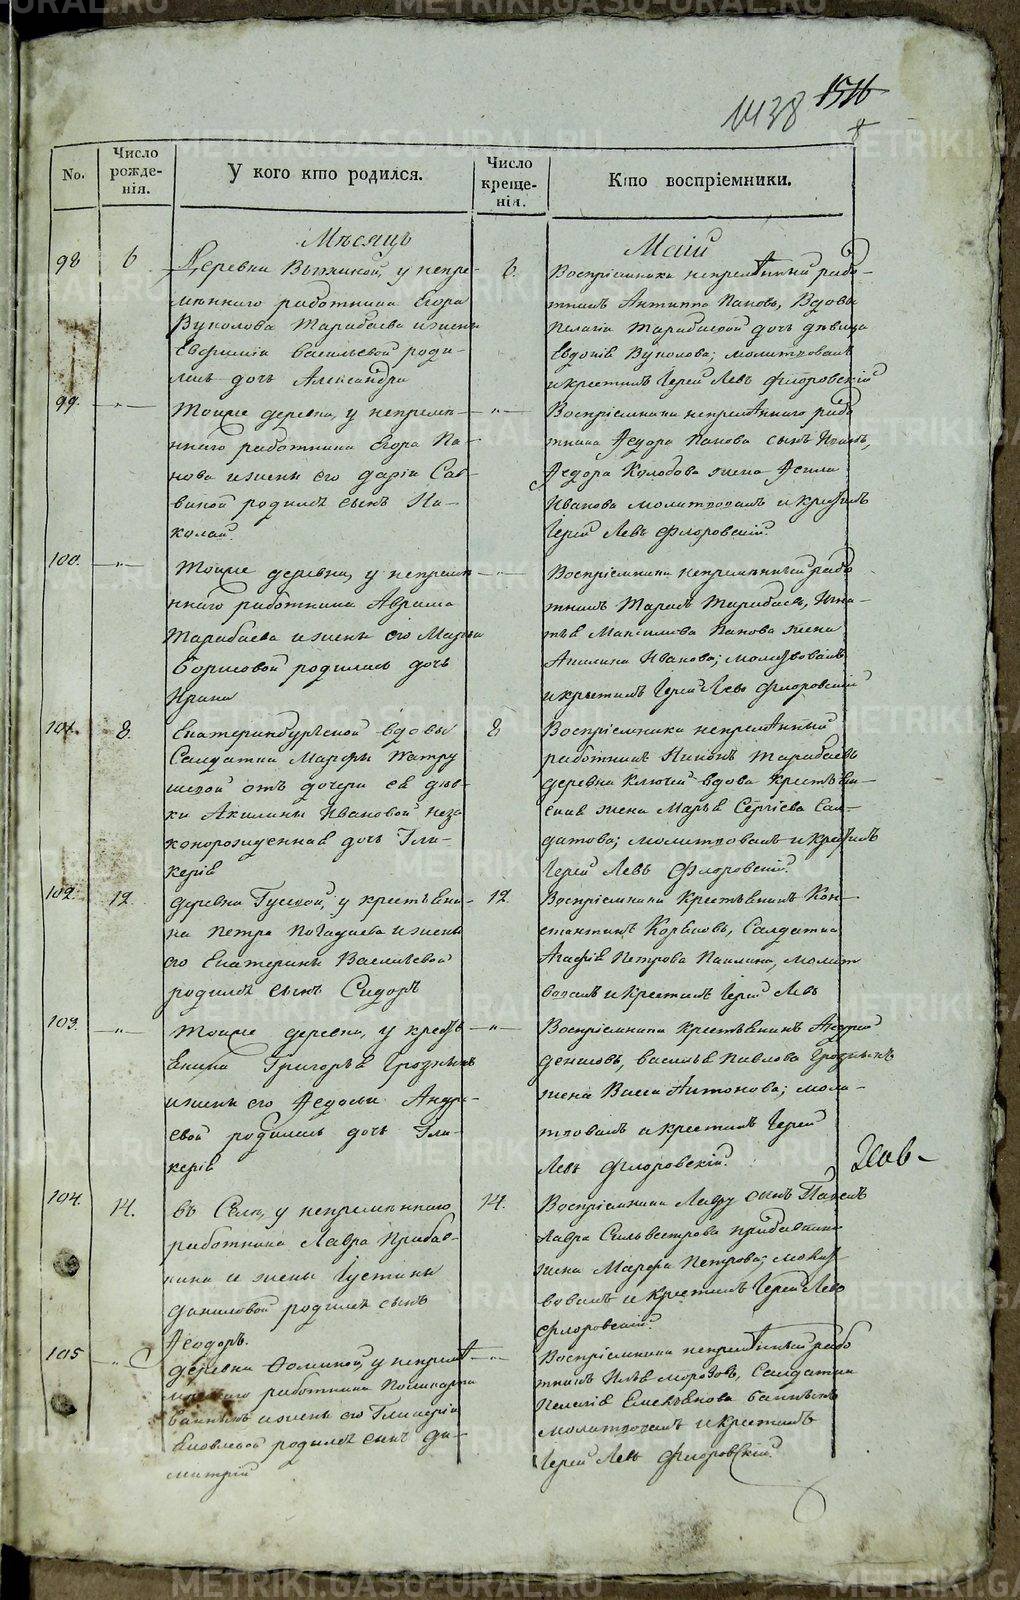 1138 1516
8
No.
Число рожденія.
У кого кто родился.
Число крещенія.
Кто воспріемники.
Мѣсяцъ
Маій
98
6
Деревни Вяткиной, у непре-
мѣннаго работника Егора
Вуколова Тарабаева и жены
Евфиміи Васильевой роди-
лась дочь Александра
6.
Воспріемники непремѣнный рабо-
тникъ Антипа Пановъ, Вдовы
Пелагіи Тарабаевой дочь дѣвица
Евдокія Вуколова; молитвовалъ
и крестилъ Іерей Левъ Флоровскій
99.
-"-
Тоиже деревни, у непремѣ-
ннаго работника Егора Па-
нова и жены его Даріи Сав-
виной родился сынъ Ни-
колай.
-"-
Воспріемники непремѣннаго рабо
тника Ѳедора Панова сынъ
Ѳедора Колобова жена
Иванова молитвовалъ и крестилъ
Іерей Левъ Флоровскій.
100.
-"-
Тоиже деревни, у непремѣ-
ннаго работника Аврама
Тарабаева и жены его Марѳы
Борисовой родилась дочь
Ирина
-"-
Воспріемники непремѣнный рабо
тникъ Тарабаевъ,
Панова жена
Акилина Иванова; молитвовалъ
и крестилъ Іерей Левъ Флоровскій
101.
8.
Екатеринбургской вдовы
Солдатки Марѳы
отъ дочери ея дѣв-
ки Акилины Ивановой неза
коннорожденная дочь Гли-
керія
8
Воспріемники непремѣнный
работникъ Никонъ Тарабаевъ
деревни Ключей вдова крестьян-
ская жена Марья Сергіева Сол-
датова; молитвовалъ и крестилъ
Іерей Левъ Флоровскій.
102.
12
деревни Гусевой, у крестьяни-
на Петра и жены
его Екатерины Васильевой
родился сынъ Сидоръ
12.
Воспріемники Крестьянинъ Кон-
стантинъ Солдатка
Агафія Петрова молит
вовалъ и Крестилъ Іерей Левъ
103.
-"-
Тоиже деревни, у крест-
янина Григорья
и жены его Ѳедосьи Андре-
евой родилась дочь Гли-
керія
-"-
Воспріемники крестьянинъ Андрей
Денисовъ, Василья Павлова
жена Васса Антонова; моли-
твовалъ и крестилъ Іерей
Левъ Флоровскій.
104.
14.
въ Селѣ, у непремѣннаго
работника Лавра Прибав-
кина и жены Іустины
Даниловой родился сынъ
Ѳеодоръ.
14.
Воспріемники Лавру сынъ Павелъ
Лавра Сильвестрова Прибавкина
жена Марѳа Петрова; молит-
вовалъ и Крестилъ Іерей Левъ
Флоровскій.
105
-"-
деревни Ѳоминой, у непремѣ-
ннаго работника Поликарпа
и жены его Гликеріи
Яковлевой родился сынъ Ди-
митрій
-"-
Воспріемники непремѣнный рабо
тникъ Илья Морозовъ, Солдатка
Пелагія Емельянова
молитвовалъ и Крестилъ
Іерей Левъ Флоровскій.
METRIKI.GASO-URAL.RU